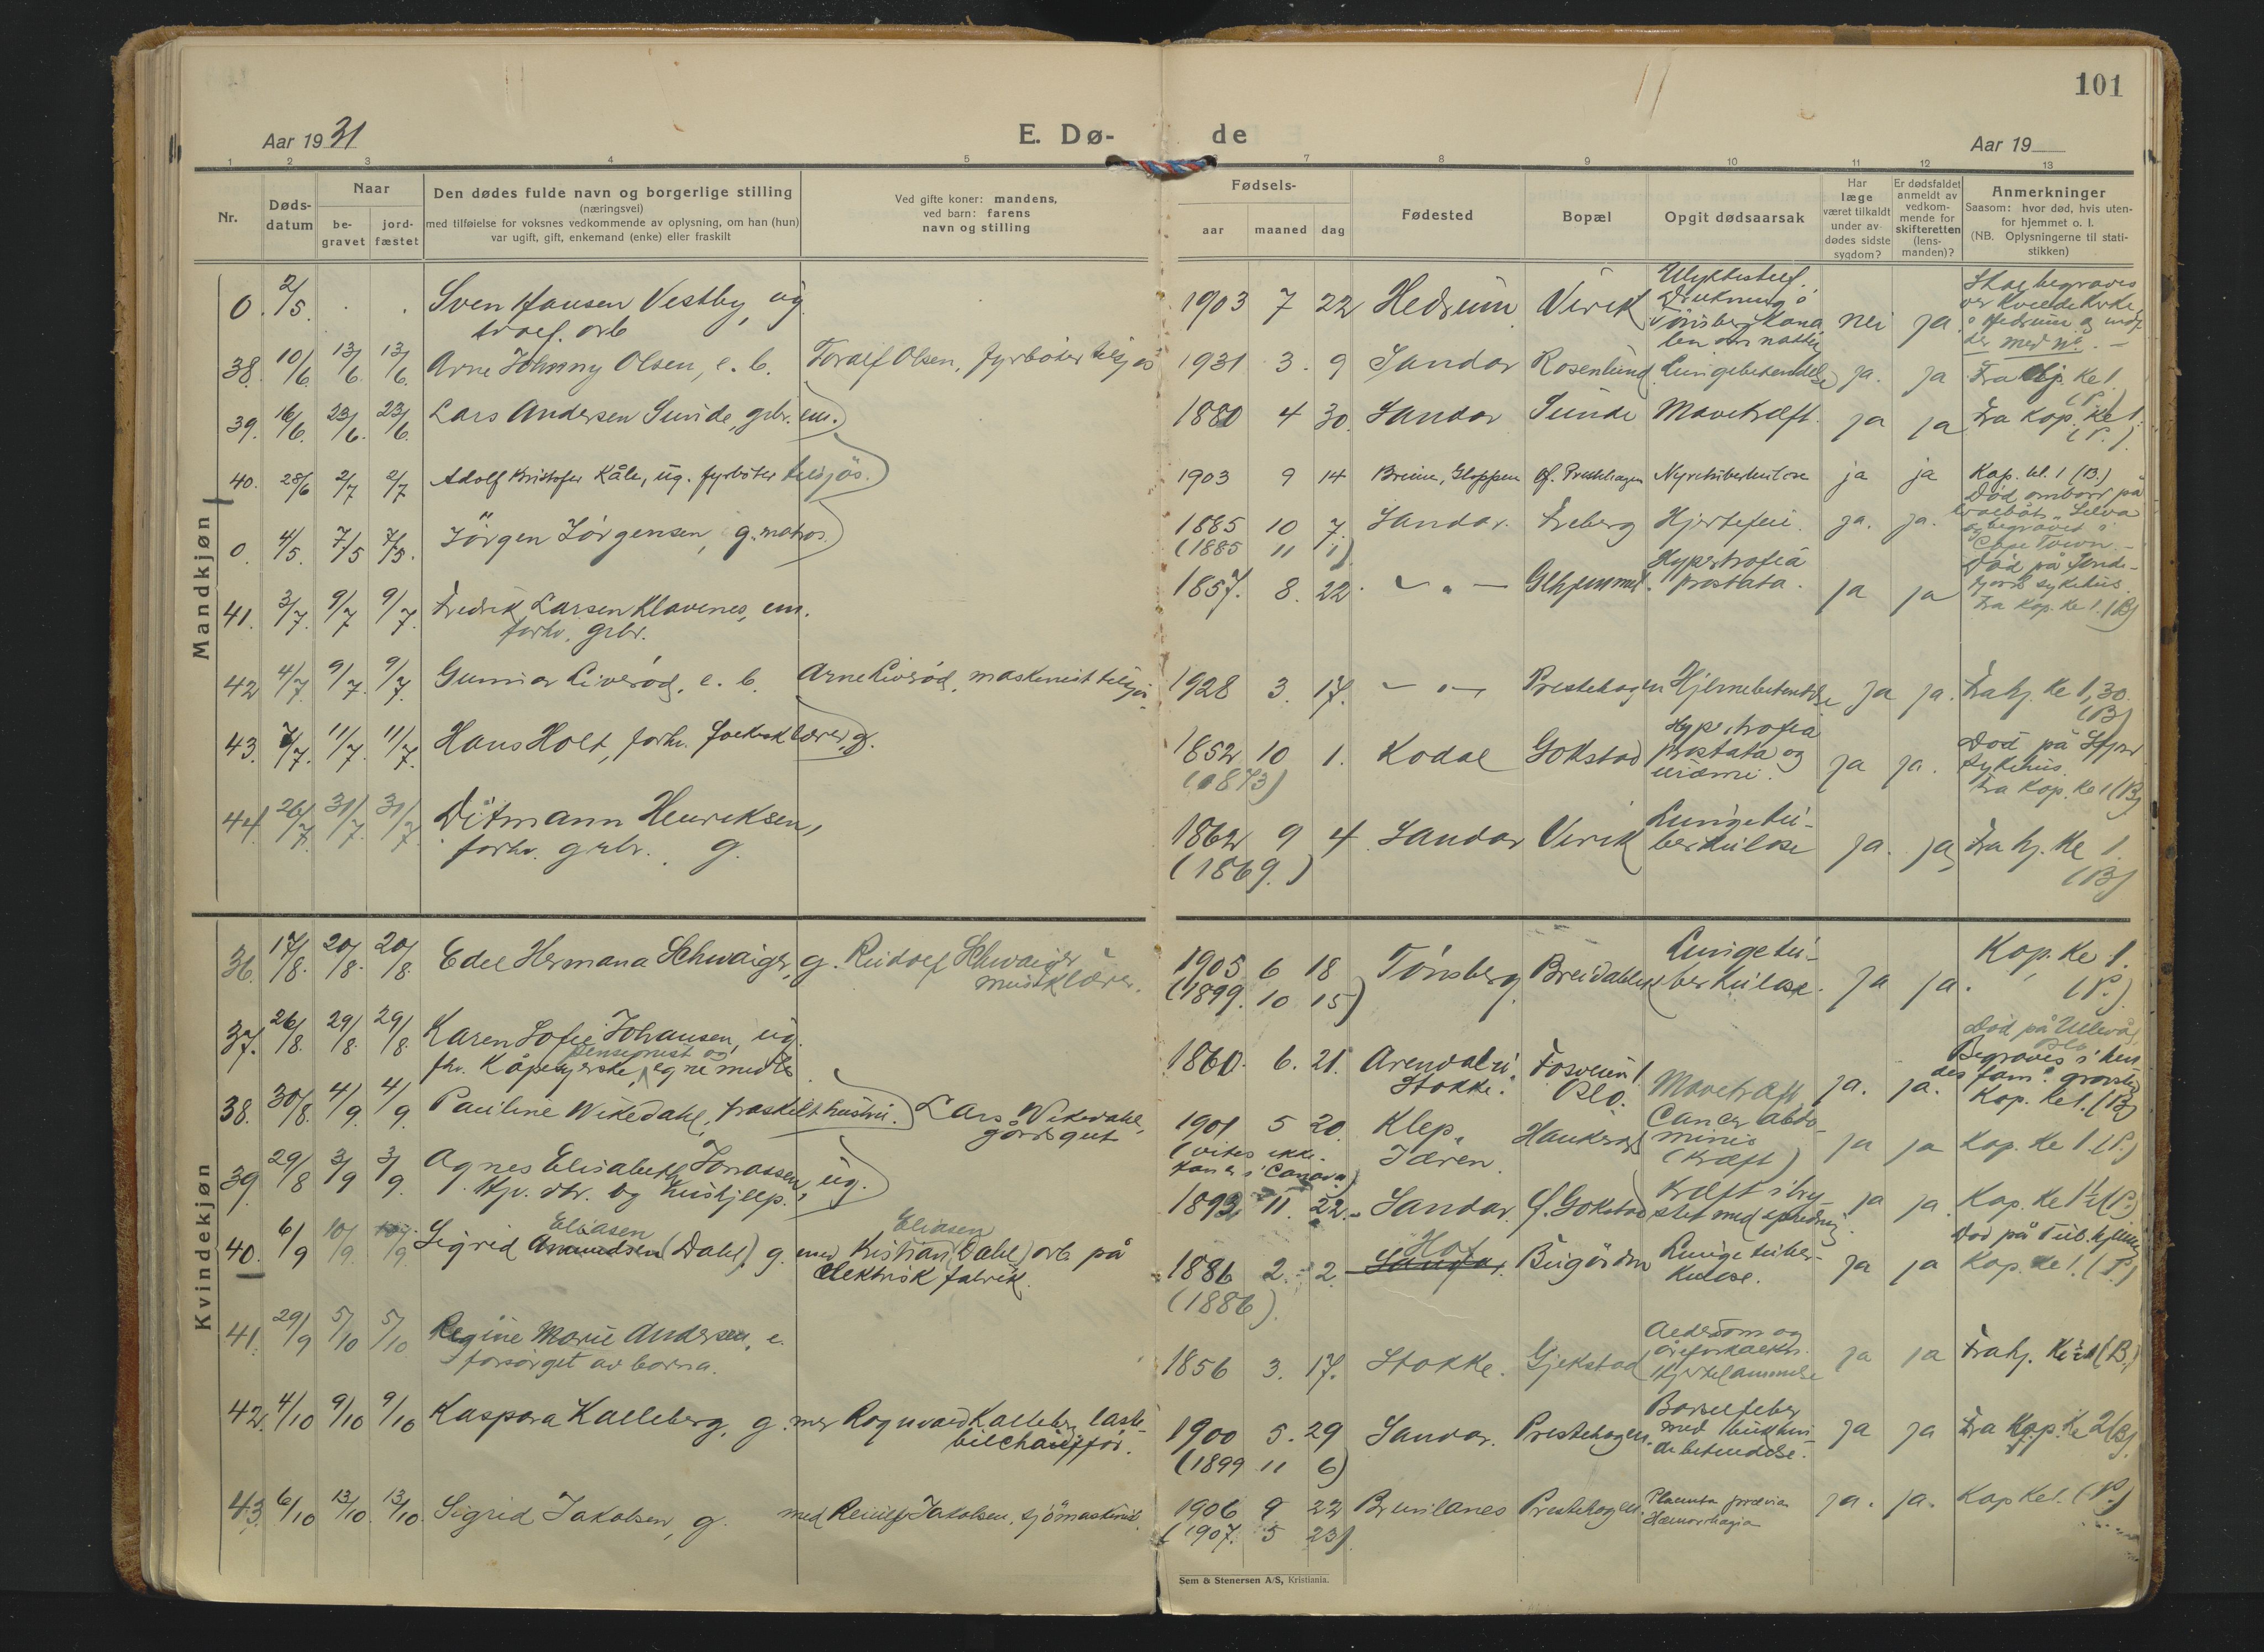 101
Aar 1931
E. Dø-
de
Aar 19
1 2 3 4 5 7 8 9 10 11 12 13
Nr.
Døds-
datum
Naar
be-
gravet
jord-
fæstet
Den dødes fulde navn og borgerlige stilling
(næringsvei)
med tilføielse for voksnes vedkommende av oplysning, om han (hun)
var ugift, gift, enkemand (enke) eller fraskilt
Ved gifte koner: mandens,
ved barn: farens
navn og stilling
Fødsels-
aar maaned dag
Fødested
Bopæl
Opgit dødsaarsak
Har
læge
været tilkaldt
under av-
dødes sidste
sygdom?
Er dødsfaldet
anmeldt av
vedkom-
mende for
skifteretten
(lens-
manden)?
Anmerkninger
Saasom: hvor død, hvis uten-
for hjemmet o. l.
(NB. Oplysningerne til stati-
stikken)
Mandkjøn
0. 2/5. Sven Hansen Vestby, ug. 1903 7 22 Hedrum Virik nei ja
Tönsberg Kana
len om natten
38. 10/6 13/6 13/6. Arne Johnny Olsen, e. b. Toralf Olsen, fyrböter tilsjös 1931 3. 9 Sandar Rosenlund Lungebetendelse ja. ja Fra Kap. Kl 1.
(P.)
39. 16/6. 23/6. 23/6. Lars Andersen Sunde, grbr. em. 1880 4 30. Sandar Sunde Mavekræft. ja ja Fra Kap. Kl 1.
(P.)
40. 28/6 2/7 2/7 Adolf Kristofer Kåle, ug. fyrböter tilsjös. 1903 9 14 Breim, Gloppen Öf. Prestehagen Nyretuberkulose ja ja Kap. kl. 1 (B.)
0. 4/5. 7/5 7/5. Jörgen Jörgensen, g. matros. 1885 10 7. Sandar. Freberg Hjertefeil. ja. ja.
(1885 11 1)
Död ombord på
og begravet i
Cape Town.
41. 3/7. 9/7 9/7. Fredrik Larsen Klavenes, em.
forhv. grbr.
1857. 8. 22. Hypertrofia
prostata. ja ja
Död på Sande-
fjords sykehus.
Fra Kap. Kl 1. (B)
42 4/7 9/7. 9/7. Gunnar Liveröd, e. b. Arne Liveröd, maskinist tilsjös. 1928 3. 17. Prestehagen Hjernebetendelse ja ja. Fra hj. Kl 1,30.
(B)
43. 7/7. 11/7. 11/7. Hans Holt, forhv. folkesklærer, g. 1852 10 1. Kodal Gokstad
(1873)
Hypertrofia
prostata og
urämi.
ja ja.
Död på Sfjord
sykehus.
Fra Kap. Kl 1 (B)
44. 26/7. 31/7. 31/7. Ditmann Henriksen,
forhv. grbr. g.
1862 9 4. Sandar Virik Lungetu-
berkulose ja. ja, Fra hj. Kl 1.
(1869.) (B)
Kvindekjøn
36. 17/8. 20/8. 20/8. Edel Hermana Schwaiger, g. Rudolf Schwaiger
musiklærer.
1905 6 18 Tönsberg Breidablik Lungetu-
berkulose. ja ja. Kap. Kl 1.
(1899. 10 15) (P.)
37. 26/8. 29/8. 29/8. Karen Sofie Johansen, ug.
fhv. Kåpesyerske, pensjonist og egne midler
1860. 6. 21. Arendal i
Stokke. Oslo. Mavekræft ja. ja.
Död på Ullevål,
Oslo
Begraves i hen-
des fam. gravsted
Kap. Kl 1. (B)
38. 30/8. 4/9. 4/9. Pauline Wikedahl, fraskilt hustru. Lars Wikedahl,
gårdsgut
1901 5 20. Klep,
Jæren.
Haukerød Cancer abdo-
minis
(Kræft) ja ja Kap. Kl 1. (P.)
(vites ikke.
han er i Canada)
39. 29/8 3/9 3/9. Agnes Elisabeth Jonassen, ug.
Hjv. dtr. og hushjelp.
1893 11. 22. Sandar. Ö. Gokstad Kræft i bry-
stet med spredning. ja ja. Kap. Kl 1½ (P.)
40. 6/9 10/9. 10/9. Sigrid Amundsen Eliasen (Dahl), g. med Kristian Eliasen (Dahl) arb på
elektrisk fabrik.
1886 2. 2. Sandar. Hof Bugården Lungetuber-
kulose. ja ja
(1886).
Död på Tub.hjemmet
Kap. Kl 1. (P.)
41. 29/9 5/10 5/10 Regine Marie Andersen, e.
forsörget av barna.
1856 3. 17. Stokke. Gjekstad Alderdom og
åreforkalkn.
Hjertelammelse ja ja
42. 4/10 9/10 9/10 Kaspara Kalleberg, g. med Ragnvald Kalleberg, laste-
bilchaufför.
1900 5. 29 Sandar. Prestehagen. Barselfeber
med bukhin-
debetendelse. ja ja Fra Kap. Kl 2 (B).
(1899 11 6)
43. 6/10 13/10. 13/10. Sigrid Jakobsen, g. med Reiulf Jakobsen, sjömaskinist. 1906 9 22 Brunlanes Prestehagen. Placenta prævia
Hæmorrhagia ja. ja. Kap Kl 1. (P.)
(1907. 5 23)
Sem & Stenersen A/S, Kristiania.